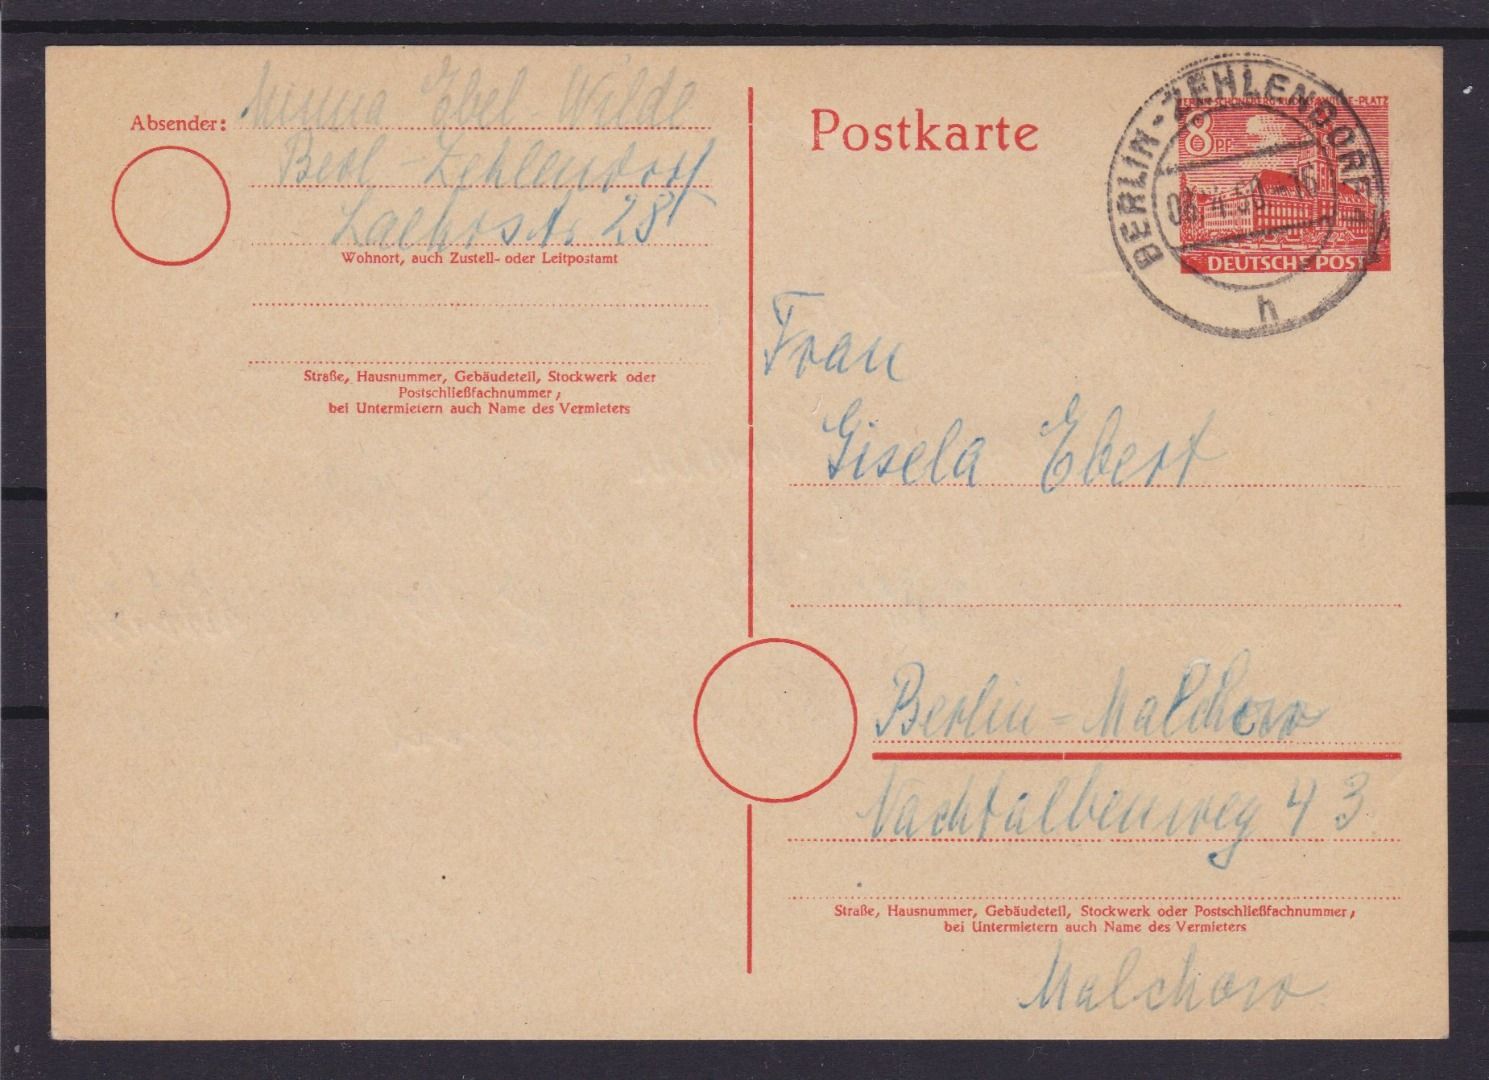 Absender:
Minna Ebel Wilde
Berl-Zehlendorf
28
Wohnort, auch Zustell- oder Leitpostamt
Straße, Hausnummer, Gebäudeteil, Stockwerk oder
Postschließfachnummer,
bei Untermietern auch Name des Vermieters
Postkarte
BERLIN-SCHÖNEBERG RUDOLF-WILDE-PLATZ
8 PF
DEUTSCHE POST
BERLIN-ZEHLENDORF 1
-16
h
Frau
Gisela Ebert
Berlin-Malchow
Nachtalbenweg 43
Straße, Hausnummer, Gebäudeteil, Stockwerk oder Postschließfachnummer,
bei Untermietern auch Name des Vermieters
Malchow